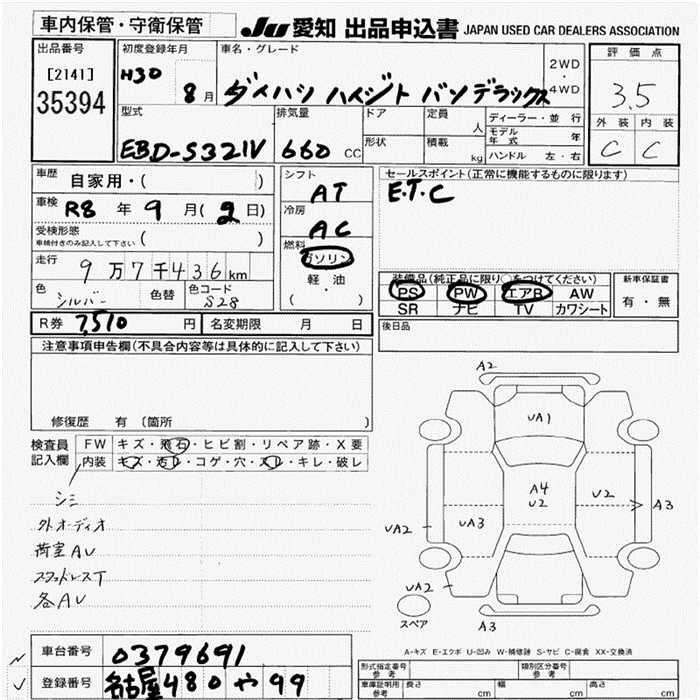 車内保管・守衛保管
Ju 愛知 出品申込書 JAPAN USED CAR DEALERS ASSOCIATION
出品番号
[2141]
35394
初度登録年月
H30 8月
車名・グレード
ダイハツ ハイゼット バン デラックス
2WD
・
4WD
評価点
3.5
外装 内装
C C
型式
EBD-S321V
排気量
660 CC
ドア
形状
定員 人
積載 kg
ディーラー・並行
モデル年式 年
ハンドル 左・右
車歴 自家用・( )
車検 R8年9月(2日)
受検形態
車検付きのみ記入して下さい ( )
走行 9万7千436km
色 シルバー 色替 色コード S28
シフト AT
冷房 AC
燃料 ガソリン
軽・油
( ・ )
セールスポイント(正常に機能するものに限ります)
E.T.C
装備品(純正品に限り○をつけてください)
PS PW エアB AW
SR ナビ TV カワシート
新車保証書
有・無
R券 7,510円 名変期限 月 日
後日品
注意事項申告欄(不具合内容等は具体的に記入して下さい)
修復歴 有 〔箇所 〕
検査員記入欄
FW キズ・飛石・ヒビ割・リペア跡・X要
内装 キズ・汚レ・コゲ・穴・スレ・キレ・破レ
シミ
外オーディオ
荷室AU
スタッドレスT
各AU
A2
UA1
A4
U2
U2
A3
UA2
UA3
UA2
スペア
A3
A-キズ E-エクボ U-凹み W-補修跡 S-サビ C-腐食 XX-交換済
車台番号 0379691
登録番号 名古屋480や99
型式指定番号
参考
類別区分番号
参考
車庫証明用
参考
長さ cm 幅 cm 高さ cm